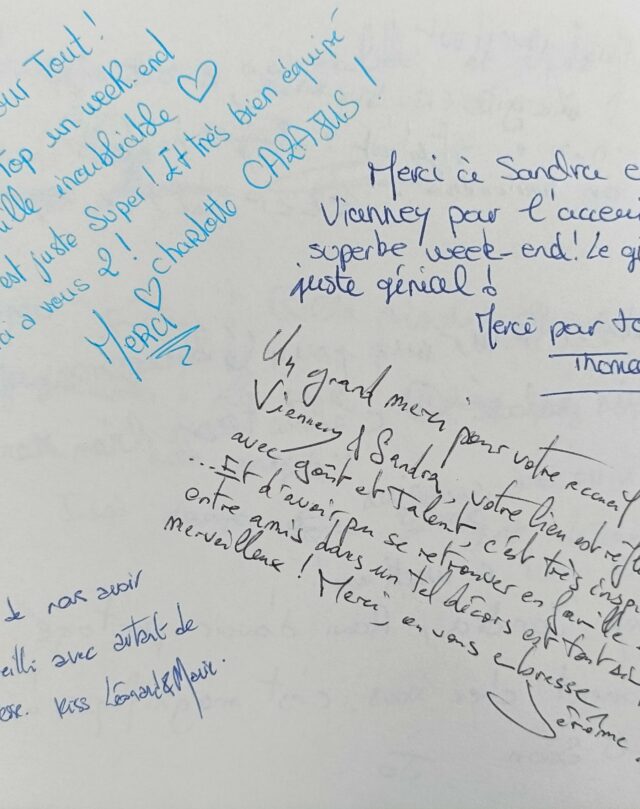 our Tout!
Top un week-end
ille inoubliable ♡
est juste Super! Et très bien équipé
ci a vous 2!
MERCI ♡ Charlotte CAZAJUS!
Merci à Sandra e
Vianney pour l'accuei
superbe week-end! Le gî
juste génial!
Merci pour to
Thoma
Un grand merci pour votre accueil
Vianney & Sandra, votre lieu est
avec goût et Talent, c'est très insp
...Et d'avoir pu se retrouver en famille
entre amis dans un tel décors est tout
merveilleux! Merci, on vous embrasse
Jérôme
de nous avoir
eilli avec autant de
sse. Kiss Léonard&Marie.